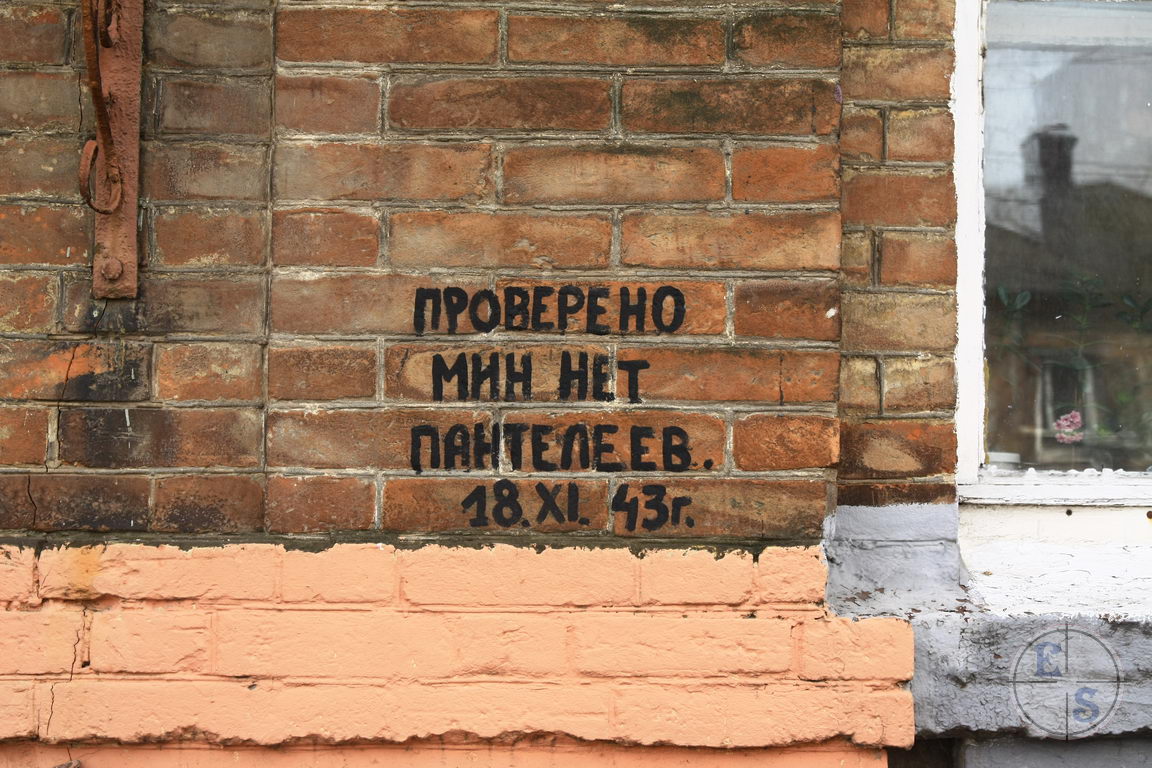 ПРОВЕРЕНО
МИН НЕТ
ПАНТЕЛЕЕВ.
18.XI. 43г.
E
S